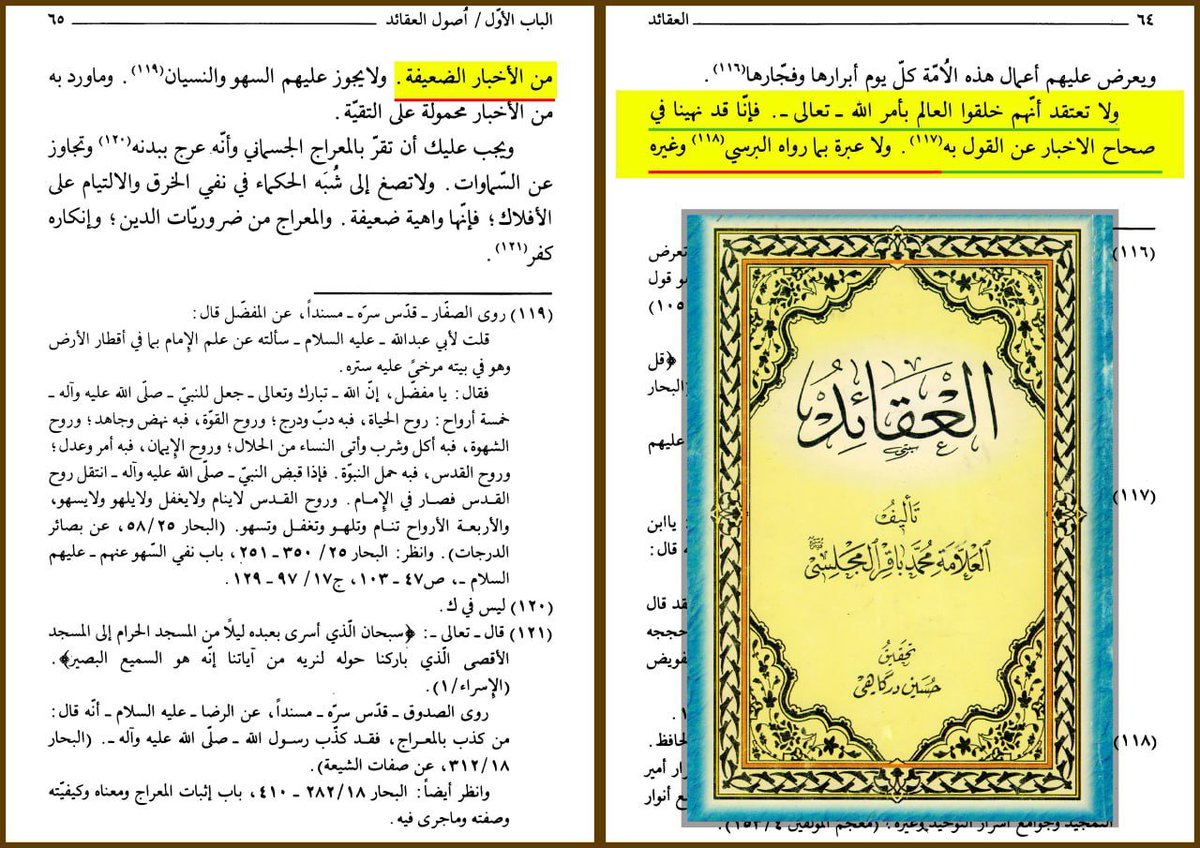 ٦٤ العقائد
ويعرض عليهم أعمال هذه الاُمّة كلّ يوم أبرارها وفجّارها(١١٦).
ولا تعتقد أنّهم خلقوا العالم بأمر الله ـ تعالى ـ. فإنّا قد نهينا في
صحاح الاخبار عن القول به(١١٧). ولا عبرة بما رواه البرسي(١١٨) وغيره
(١١٦)
تعرض
و قول
١٠٥)
﴿قل
البحار
عليهم
(١١٧)
ياابن
ه قال:
قد قال
حججه
فويض
(١١٨)
لحافظ.
رار أمير
ع أنوار
التمجيد وجوامع أسرار التوحيد وغيره. (معجم المؤلفين ٤/ ١٥٣).
العقائد
تأليف
العلامة محمد باقر المجلسي
تحقيق
حسين درگاهي
الباب الأوّل / اُصول العقائد ٦٥
من الأخبار الضعيفة. ولايجوز عليهم السهو والنسيان(١١٩). وماورد به
من الأخبار محمولة على التقيّة.
ويجب عليك أن تقرّ بالمعراج الجسماني وأنّه عرج ببدنه(١٢٠) وتجاوز
عن السّماوات. ولاتصغ إلى شُبَه الحكماء في نفي الخرق والالتيام على
الأفلاك؛ فإنّها واهية ضعيفة. والمعراج من ضروريّات الدين؛ وإنكاره
كفر(١٢١).
(١١٩) روى الصفّار ـ قدّس سرّه ـ مسنداً، عن المفضّل قال:
قلت لأبي عبدالله ـ عليه السلام ـ سألته عن علم الإمام بما في أقطار الأرض
وهو في بيته مرخىً عليه ستره.
فقال: يا مفضّل، إنّ الله ـ تبارك وتعالى ـ جعل للنبيّ ـ صلّى الله عليه وآله ـ
خمسة أرواح: روح الحياة، فبه دبّ ودرج؛ وروح القوّة، فبه نهض وجاهد؛ وروح
الشهوة، فبه أكل وشرب وأتى النساء من الحلال؛ وروح الإيمان، فبه أمر وعدل؛
وروح القدس، فبه حمل النبوّة. فإذا قبض النبيّ ـ صلّى الله عليه وآله ـ انتقل روح
القدس فصار في الإمام. وروح القدس لاينام ولايغفل ولايلهو ولايسهو،
والأربعة الأرواح تنام وتلهو وتغفل وتسهو. (البحار ٥٨/٢٥، عن بصائر
الدرجات). وانظر: البحار ٢٥/ ٣٥٠ ـ ٢٥١، باب نفي السّهو عنهم ـ عليهم
السلام ـ، ص٤٧ ـ ١٠٣، ج١٧/ ٩٧ ـ ١٢٩.
(١٢٠) ليس في ك.
(١٢١) قال ـ تعالى ـ: ﴿سبحان الّذي أسرى بعبده ليلاً من المسجد الحرام إلى المسجد
الأقصى الّذي باركنا حوله لنريه من آياتنا إنّه هو السميع البصير﴾.
(الإسراء/١).
روى الصدوق ـ قدّس سرّه ـ مسنداً، عن الرضا ـ عليه السلام ـ أنّه قال:
من كذب بالمعراج، فقد كذّب رسول الله ـ صلّى الله عليه وآله ـ. (البحار
٣١٢/١٨، عن صفات الشيعة).
وانظر أيضاً: البحار ٢٨٢/١٨ ـ ٤١٠، باب إثبات المعراج ومعناه وكيفيّته
وصفته وماجرى فيه.